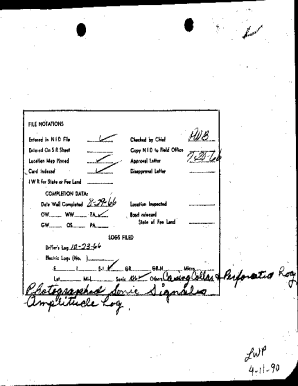 FILE NOTATIONS
Entered in N I D File ✓ Checked by Chief PWB
Entered On S R Sheet Copy N I D to Field Office
Location Map Pinned ✓ Approval Letter 7-25-66
Card Indexed ✓ Disapproval Letter
I W R for State or Fee Land
COMPLETION DATA:
Date Well Completed 8-29-66 Location Inspected
OW WW PA ✓ Bond released
GW OS PA State of Fee Land
LOGS FILED
Driller's Log 10-23-66
Electric Logs (No. )
E I E-I ✓ GR GR-N Micro
Lat Mi-L Sonic Others Casing Collar & Perforation Log
Photographed Sonic Signals
Amplitude Log.
LWP
4-11-90